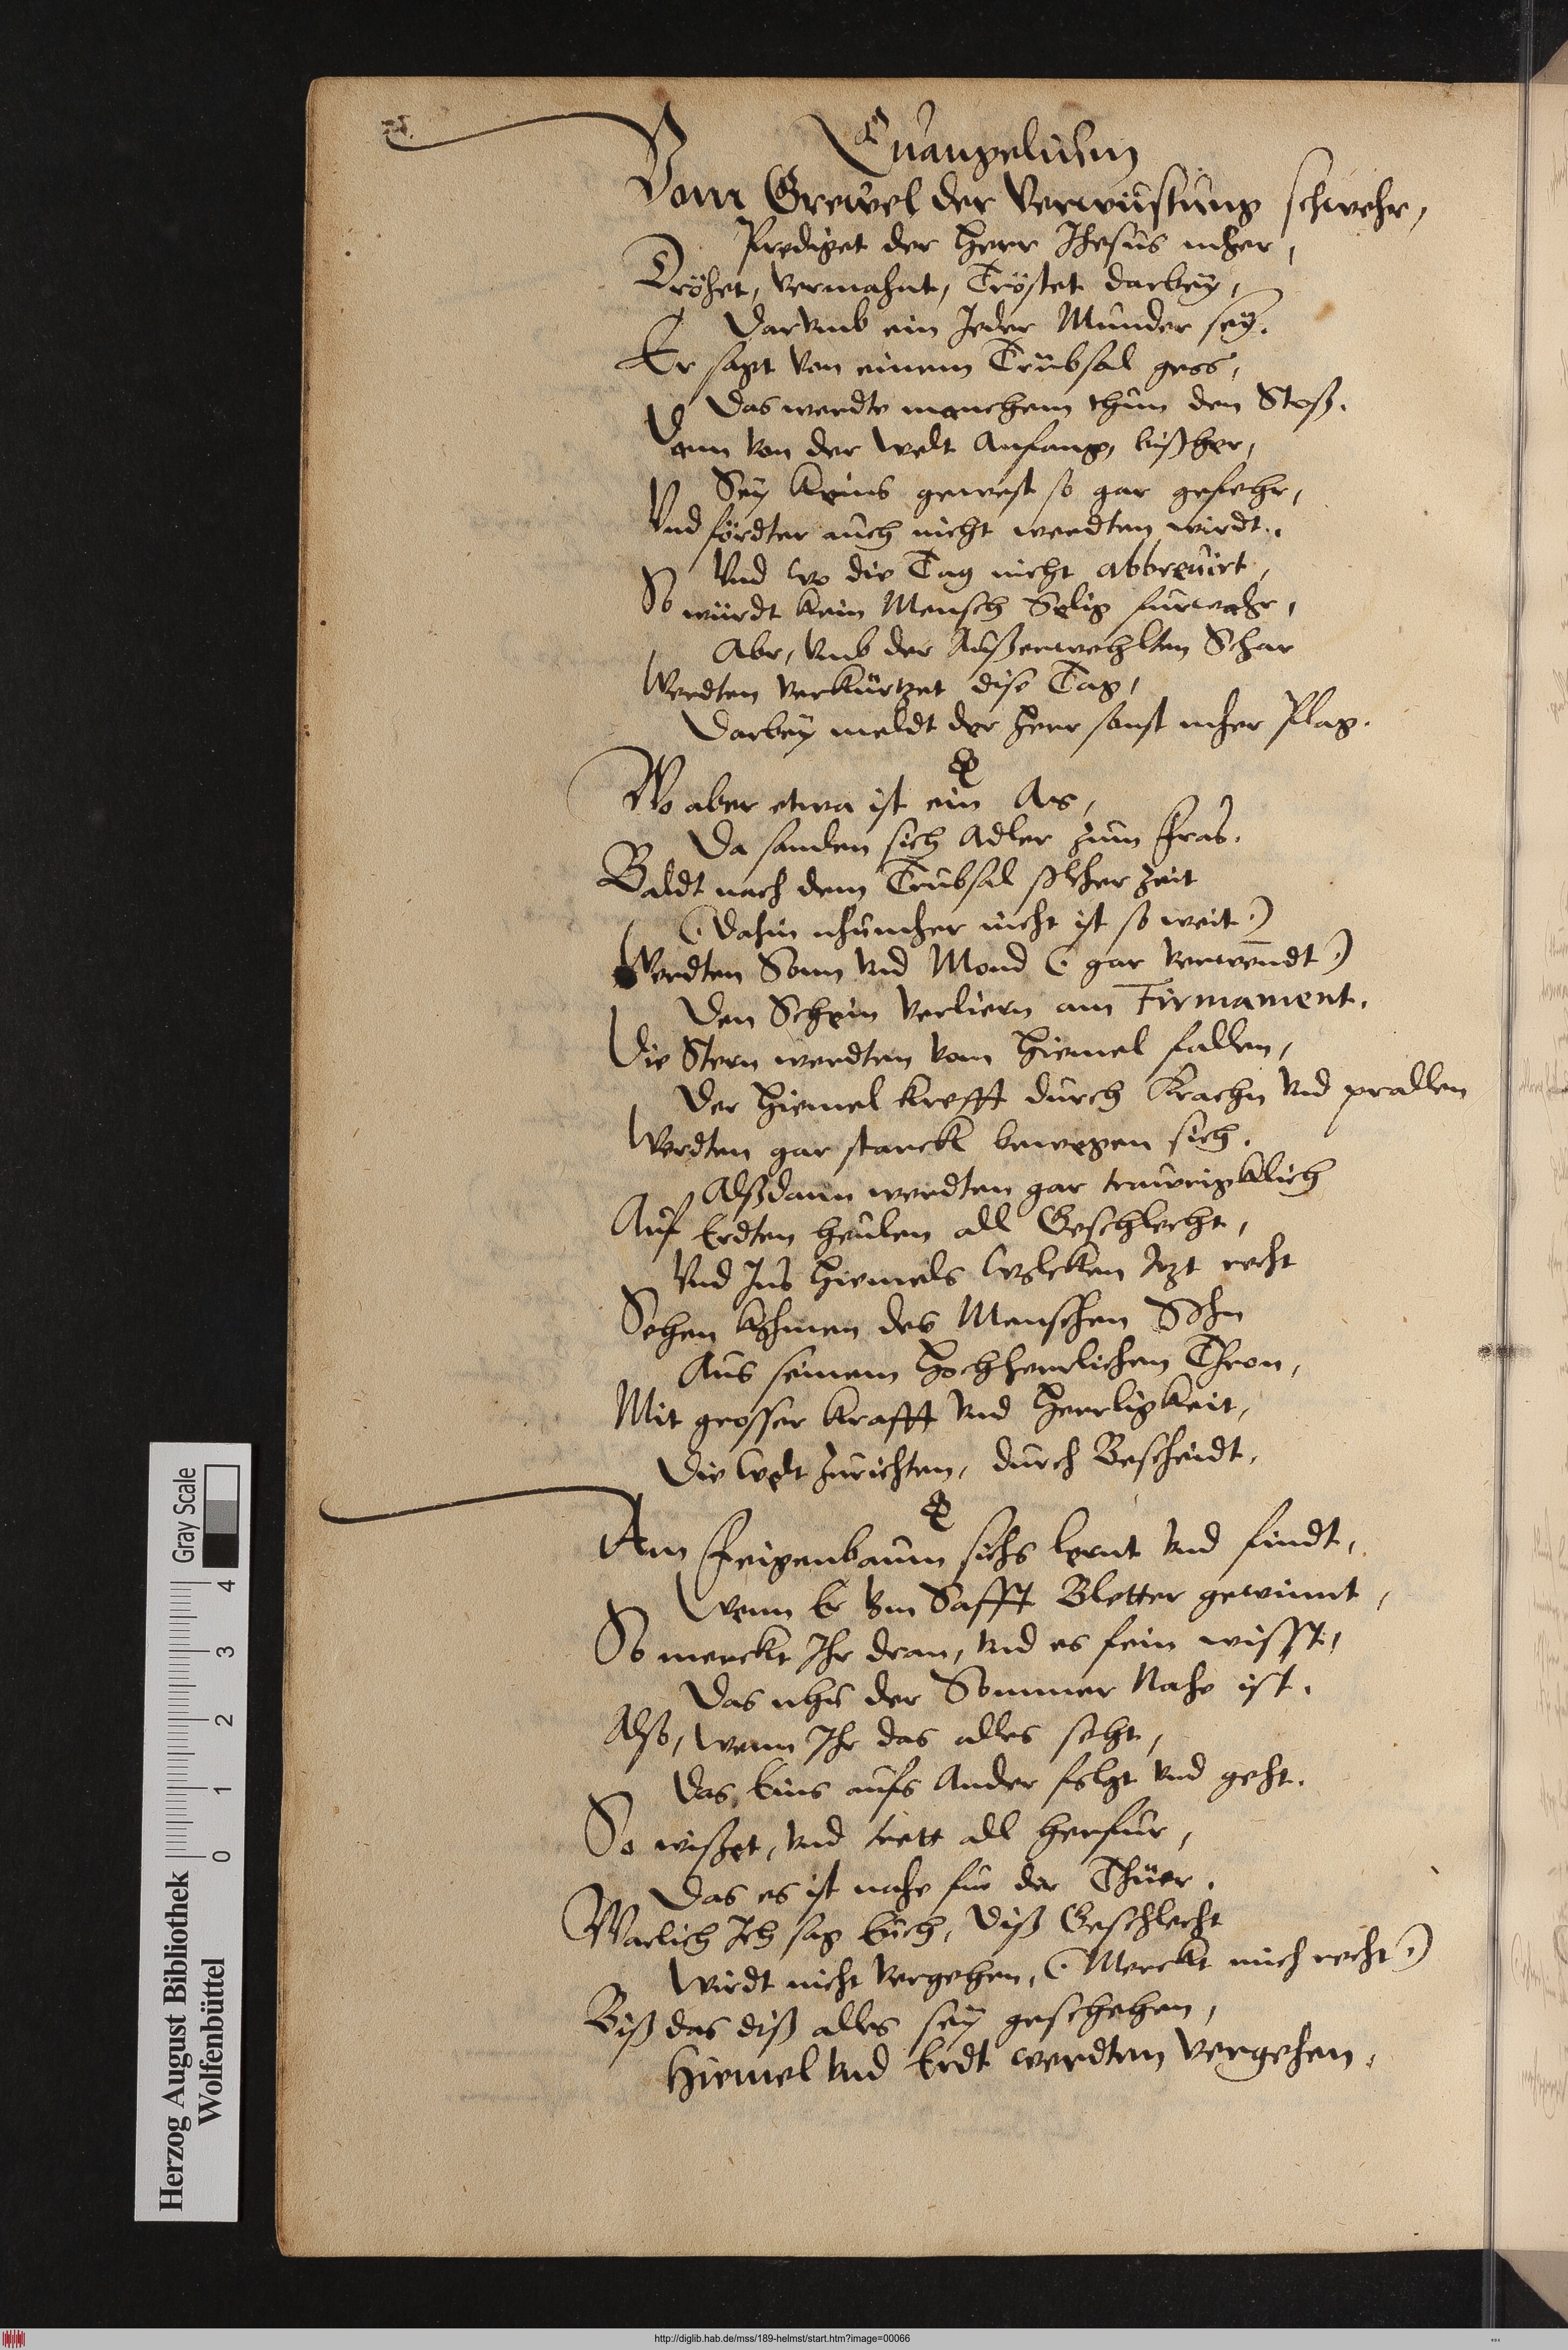 Euangelium
Vom Grewel der Verwüstung schwehr,
Prediget der Herr Jhesus mher,
Dröhet, vermahnt, Tröstet darbey,
Darumb ein Jeder Munder sey.
Er sagt von einem Trübsal gros,
Das werdte manchem thun den Stoß.
Denn von der Welt Anfang, bißher,
Sey keins gewest so gar gefehr,
Vnd fördter auch nicht werdten wirdt.
Vnd wo die Tag nicht abbreuirt,
So würdt kein Mensch Selig furwahr,
Abr, vmb der Außerwehlten Schar
Werdten verkürtzet dise Tag,
Darbey meldt der Herr sonst mher Plag.
Wo aber etwa ist ein As,
Da samlen sich Adler zum Fras.
Baldt nach dem Trübsal solcher Zeit
(Dahin nhumher nicht ist so weit)
Werdten Sonn vnd Mond (gar verwendt)
Den Schein verliern am Firmament.
Die Stern werdten vom Hiemel fallen,
Der Hiemel krefft durch Krachn vnd prallen
Werdten gar starck bewegen sich.
Alßdann werdten gar trawrigklich
Auf Erdten heulen all Geschlecht,
Vnd Ins Hiemels Wolcken Itzt recht
Sehen kohmen des Menschen Sohn
Aus seinem Hochherrlichen Thron,
Mit grosser krafft vnd Herrligkeit,
Die Welt zurichten, durch Bescheidt.
Am Feigenbaum sichs lernt vnd findt,
Wenn Er vom Safft Bletter gewinnt,
So merckt Ihr dran, vnd es fein wisst,
Das nhu der Sommer Nahe ist.
Also, wenn Ihr das alles seht,
Das Eins aufs Ander folgt vnd geht.
So wißet, vnd trett all herfur,
Das es ist nahe fur der Thüer.
Warlich Ich sag Euch, Diß Geschlecht
Wirdt nicht vergehen, (Merckt mich recht)
Biß das diß alles sey geschehen,
Hiemel vnd Erdt werdten vergehen.
Herzog August Bibliothek
Wolfenbüttel
0 1 2 3 4
Gray Scale
http://diglib.hab.de/mss/189-helmst/start.htm?image=00066